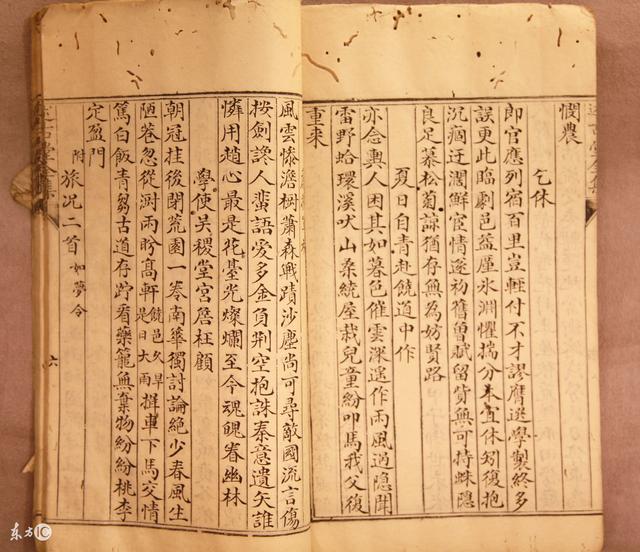 憫農
乞休
郎官應列宿百里豈輕付不才謬膺選學製終多
誤更此臨劇邑益厪氷淵懼揣分本宜休矧復抱
沉痼迂濶鮮宦情遂初舊曾賦留貲無可持蛛隱
良足慕松菊諒猶存無為妨賢路
夏日自青赴饒道中作
亦念輿人困其如暮色催雲深遙作雨風過隱聞
雷野蛤環溪吠山桑繞屋栽兒童紛叩馬我父復
重来
風雲慘澹樹蕭森戰蹟沙塵尚可尋敵國流言傷
按劍讒人蜚語愛多金負荆空抱誅秦意遺矢誰
憐用趙心最是花臺光燦爛至今魂魄眷幽林
學使吴稷堂宮詹枉顧
朝冠挂後閉荒園一卷南華獨討論絶少春風生
陋巷忽從澍雨盻髙軒饒邑久旱是日大雨撵車下馬交情
篤白飯青芻古道存跱看藥籠無棄物紛紛桃李
定盈門
附 旅况二首 如夢令
六
东方IC